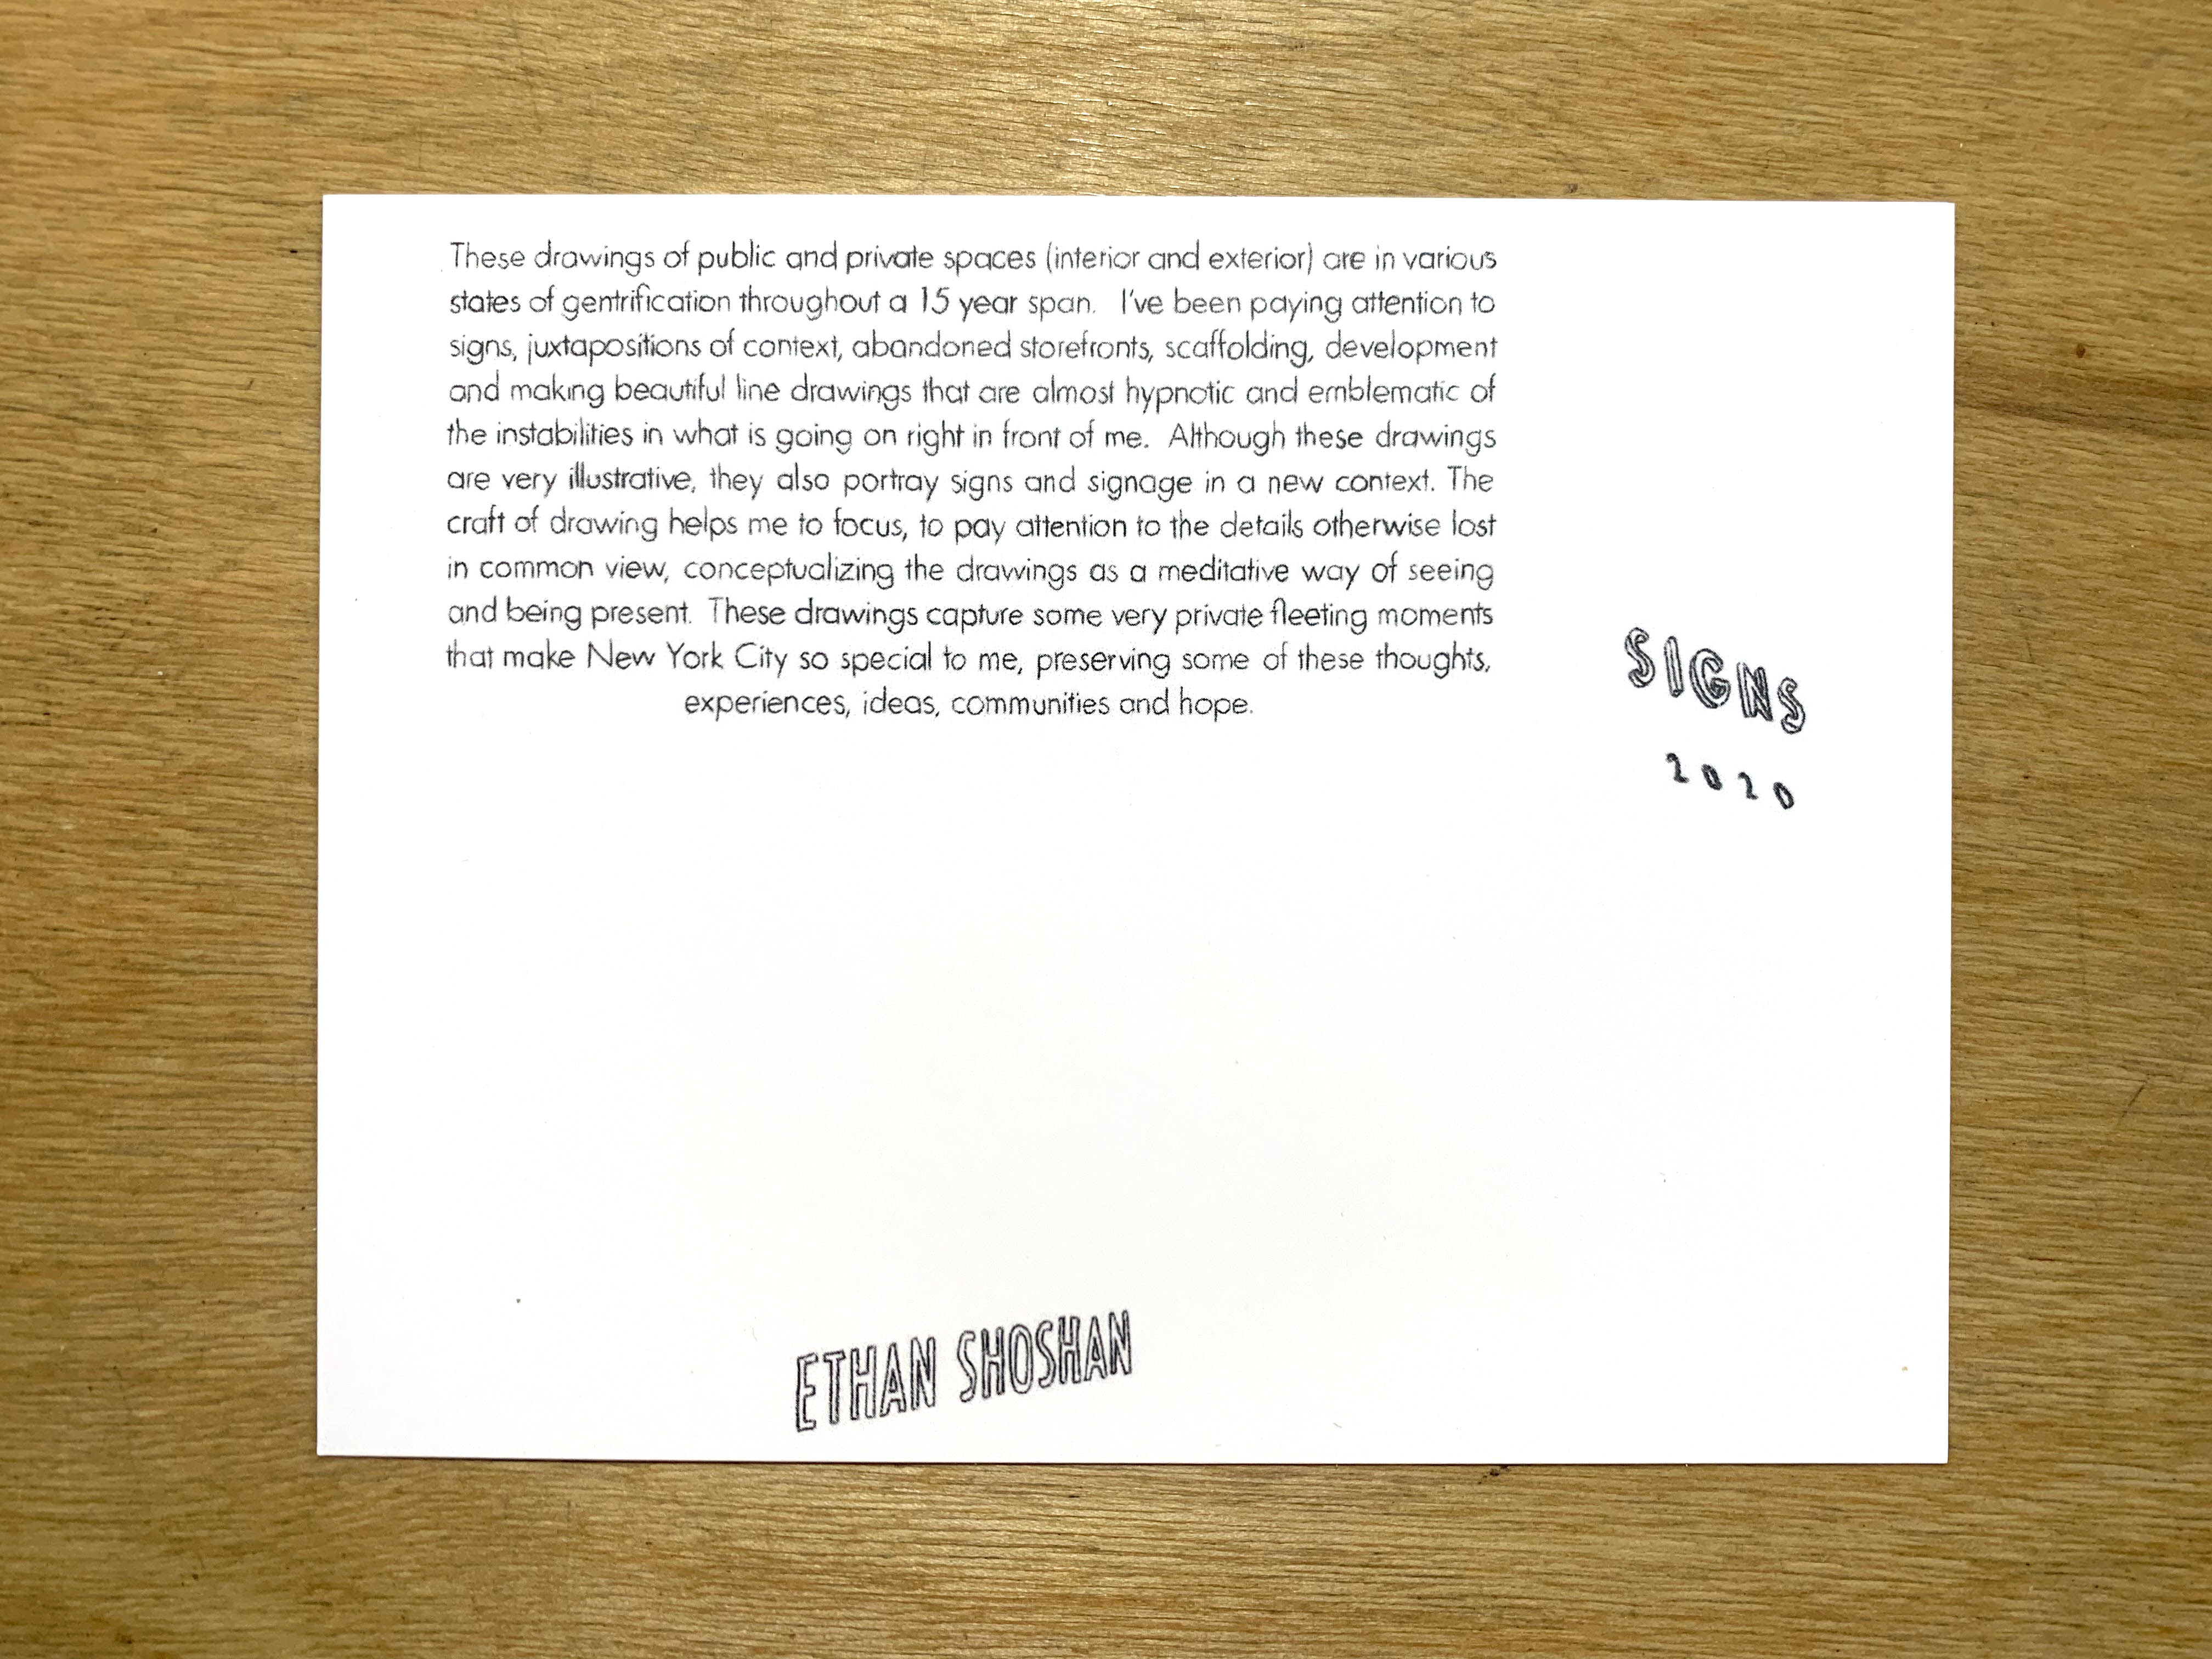 These drawings of public and private spaces (interior and exterior) are in various
states of gentrification throughout a 15 year span.  I've been paying attention to
signs, juxtapositions of context, abandoned storefronts, scaffolding, development
and making beautiful line drawings that are almost hypnotic and emblematic of
the instabilities in what is going on right in front of me.  Although these drawings
are very illustrative, they also portray signs and signage in a new context. The
craft of drawing helps me to focus, to pay attention to the details otherwise lost
in common view, conceptualizing the drawings as a meditative way of seeing
and being present.  These drawings capture some very private fleeting moments
that make New York City so special to me, preserving some of these thoughts,
experiences, ideas, communities and hope.
SIGNS
2020
ETHAN SHOSHAN